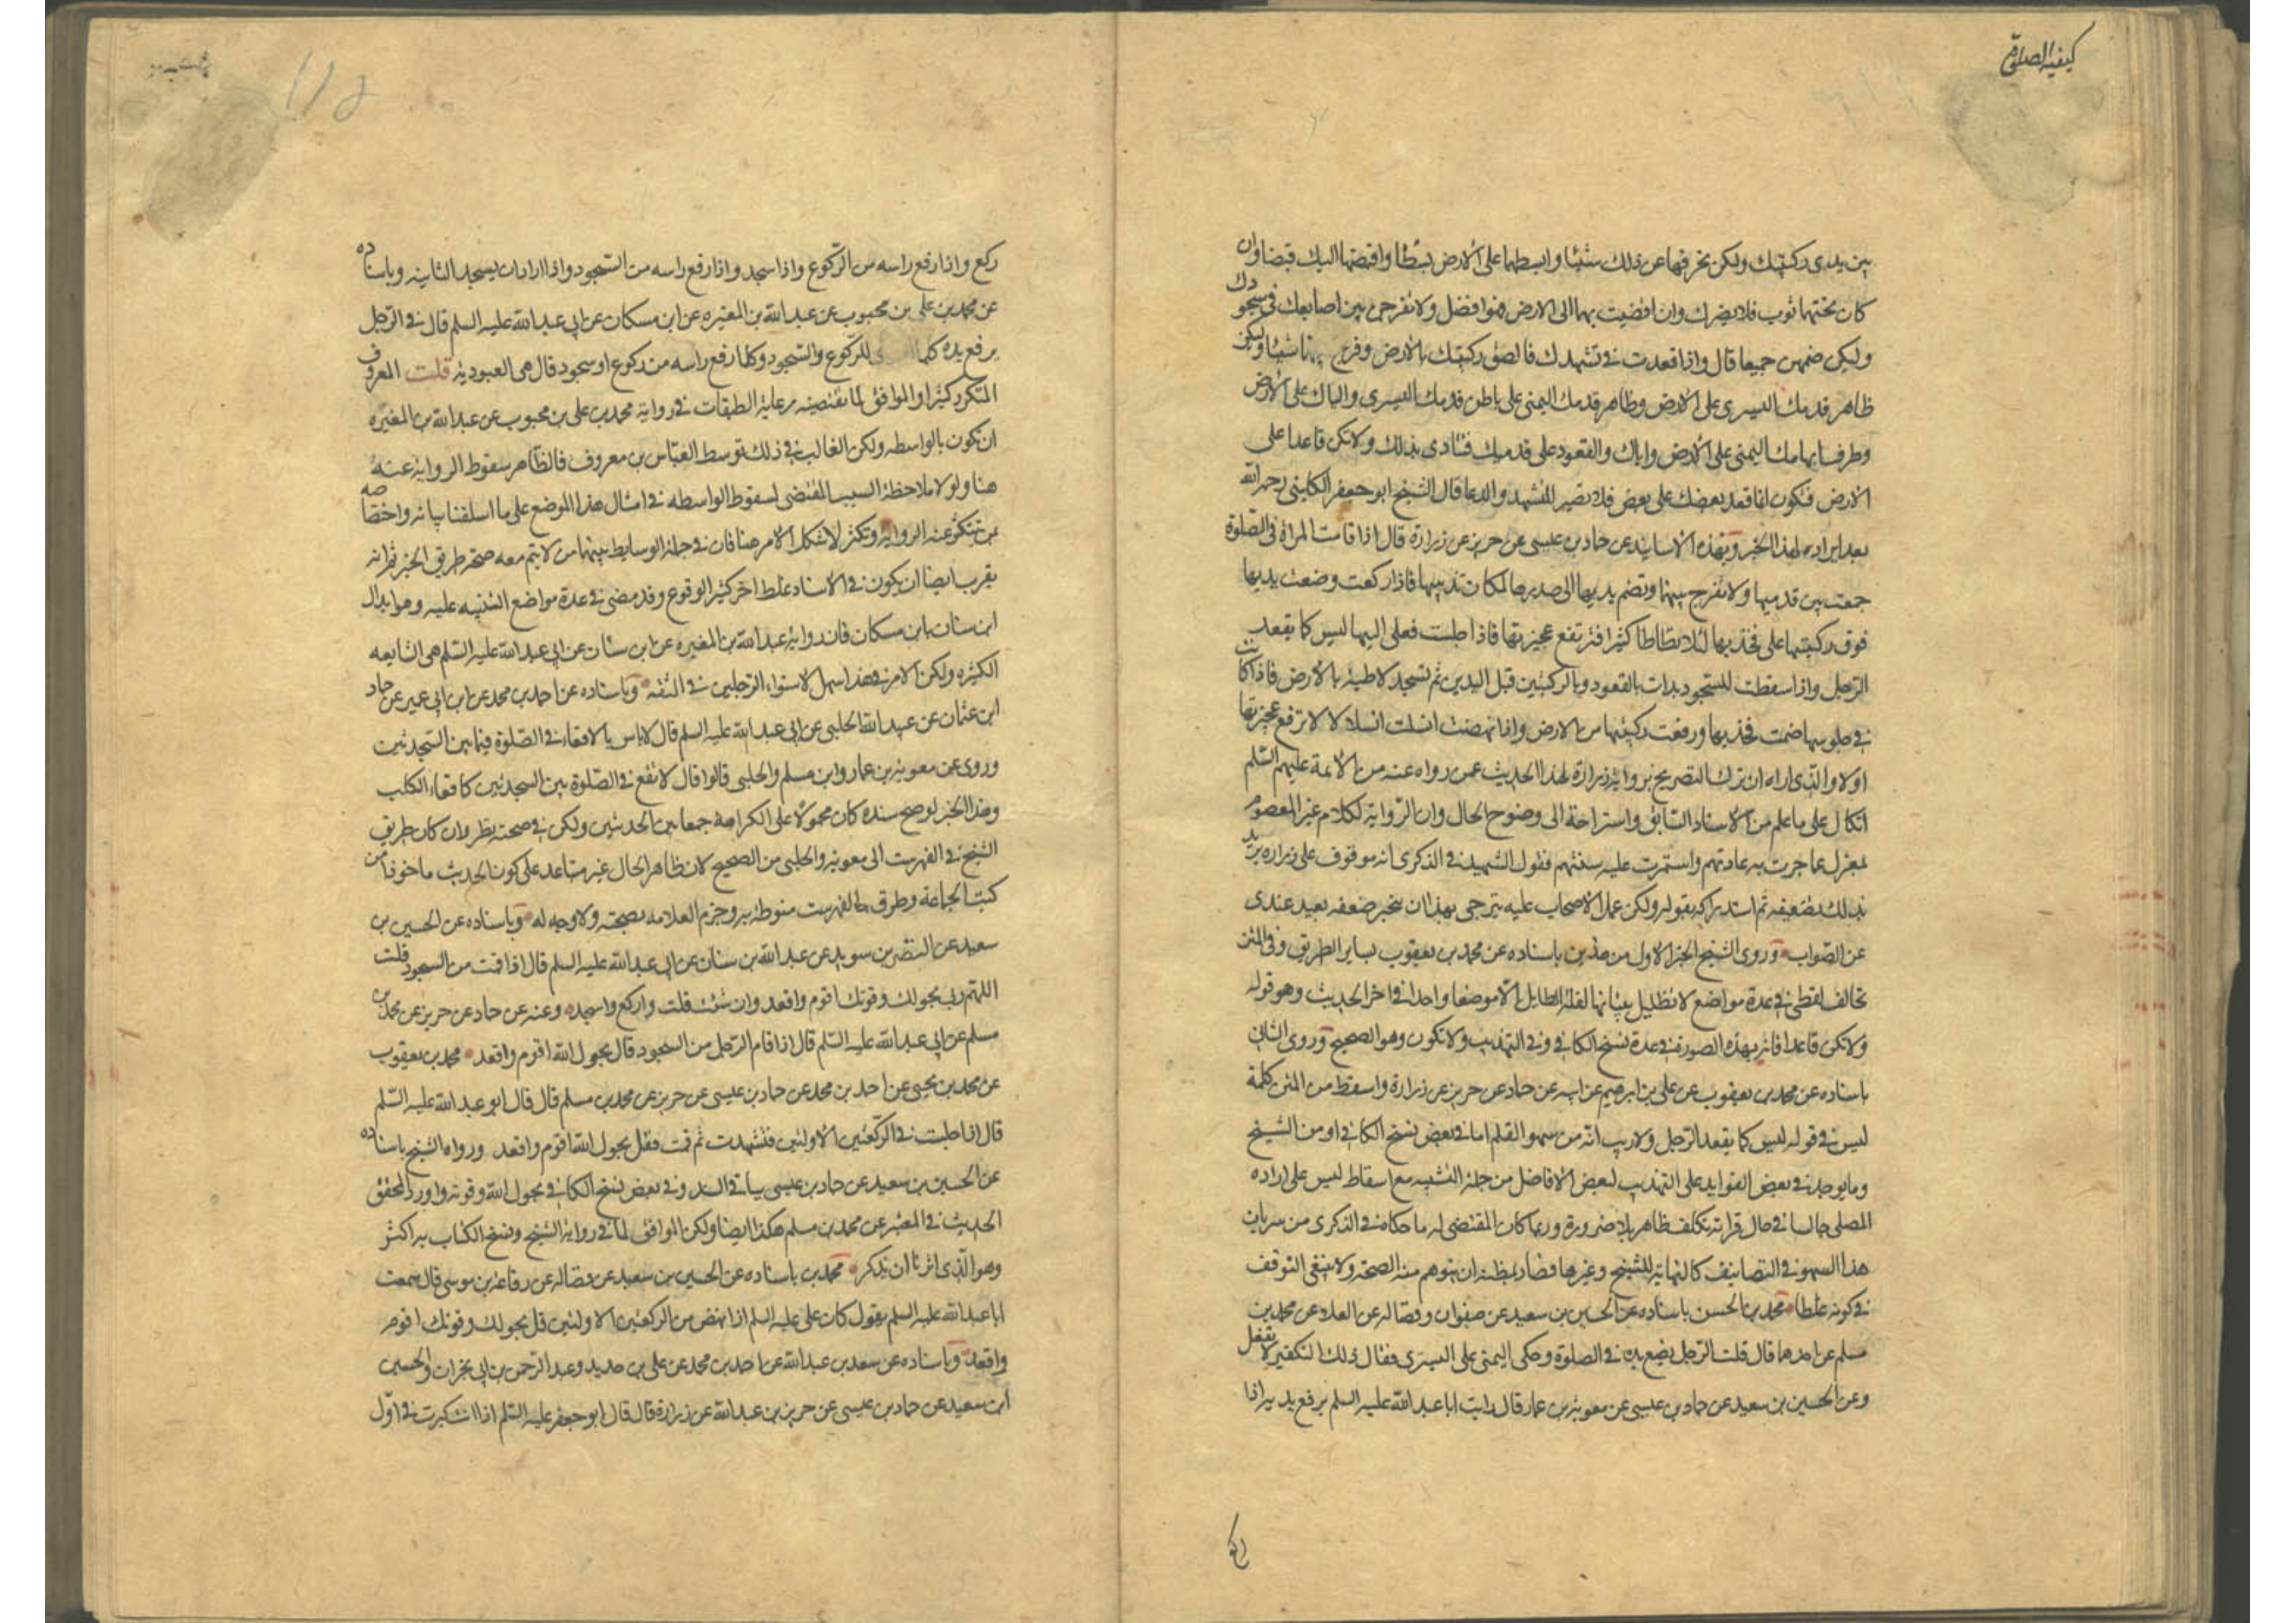 كيفية الصلوة
بين يدى ركبتيك ولكن تحرفهما عن ذلك شيئا وابسطهما على الارض بسطا واقبضهما اليك قبضا وان
كان تحتهما ثوب فلا يضرك وان افضيت بهما الى الارض فهو افضل ولا تفرجن بين اصابعك فى سجودك
ولكن ضمهن جميعا قال واذا قعدت فى تشهدك فالصق ركبتيك بالارض وفرج بينهما شيئا وليكن
ظاهر قدمك اليسرى على الارض وظاهر قدمك اليمنى على باطن قدمك اليسرى والياك على الارض
وطرف ابهامك اليمنى على الارض واياك والقعود على قدميك فتتاذى بذلك ولا تكن قاعدا على
الارض فتكون انما قعد بعضك على بعض فلا تصبر للتشهد والدعا قال الشيخ ابو جعفر الكلينى رحمه الله
بعد ايراده لهذا الخبر وبهذه الاسانيد عن حماد بن عيسى عن حريز عن زرارة قال اذا قامت المراة فى الصلوة
جمعت بين قدميها ولا تفرج بينهما وتضم يديها الى صدرها لمكان ثدييها فاذا ركعت وضعت يديها
فوق ركبتيها على فخذيها لئلا تطاطا كثيرا فترتفع عجيزتها فاذا جلست فعلى اليها ليس كما يقعد
الرجل واذا سقطت للسجود بدات بالقعود وبالركبتين قبل اليدين ثم تسجد لاطئة بالارض فاذا كانت
فى جلوسها ضمت فخذيها ورفعت ركبتيها من الارض واذا نهضت انسلت انسلالا لا ترفع عجيزتها
اولا والذى اراه ان ترك التصريح برواية زرارة لهذا الحديث عمن رواه عنه من الائمة عليهم السلم
اتكال على ما علم من الاسناد السابق واستراحة الى وضوح الحال وان الرواية لكلام غير المعصوم
بمعزل عما جرت به عادتهم واستمرت عليه سنتهم فقول الشهيد فى الذكرى انه موقوف على زراره يريد
بذلك تضعيفه ثم استدراكه بقوله ولكن عمل الاصحاب عليه يترجى بهذا ان ينجبر ضعفه بعيد عندى
عن الصواب وروى الشيخ الخبر الاول من هذين باسناده عن محمد بن يعقوب بساير الطريق وفى المتن
تخالف لفظى فى عدة مواضع لا نطيل ببيانها لقلة الطايل الا موضعا واحدا فى اخر الحديث وهو قوله
ولا تكن قاعدا فانه بهذه الصورة فى عدة نسخ الكافى وفى التهذيب ولا تكون وهو الصحيح وروى الثانى
باسناده عن محمد بن يعقوب عن على بن ابرهيم عن ابيه عن حماد عن حريز عن زرارة واسقط من المتن كلمة
ليس فى قوله ليس كما يقعد الرجل ولا ريب انه من سهو القلم اما فى بعض نسخ الكافى او من الشيخ
وما يوجد فى بعض الفوايد على التهذيب لبعض الافاضل من جملة التشبيه مع اسقاط ليس على اراده
المصلى جالسا فى حال قراته تكلف ظاهر بلا ضرورة وربما كان المقتضى له ما حكاه فى الذكرى من سريان
هذا السهو فى التصانيف كالنهاية للشيخ وغيرها فصار لمظنه ان يتوهم منه الصحة ولا ينبغى التوقف
فى كونه غلطا محمد بن الحسن باسناده عن الحسين بن سعيد عن صفوان وفضاله عن العلا عن محمد بن
مسلم عن احدهما قال قلت الرجل يضع يده فى الصلوة وحكى اليمنى على اليسرى فقال ذلك التكفير لا تفعل
وعن الحسين بن سعيد عن حماد بن عيسى عن معوية بن عمار قال رايت ابا عبد الله عليه السلم يرفع يديه اذا
ركع
١١٥
ركع واذا رفع راسه من الركوع واذا سجد واذا رفع راسه من السجود واذا اراد ان يسجد الثانيه وباسناده
عن محمد بن على بن محبوب عن عبد الله بن المغيره عن ابن مسكان عن ابى عبد الله عليه السلم قال فى الرجل
يرفع يده كلما للركوع والسجود وكلما رفع راسه من ركوع او سجود قال هى العبودية قلت المعروف
المتكرر كثيرا والموافق لما تقتضيه رعاية الطبقات فى رواية محمد بن على بن محبوب عن عبد الله بن المغيره
ان تكون بالواسطه ولكن الغالب فى ذلك توسط العباس بن معروف فالظاهر سقوط الرواية عنه
هنا ولولا ملاحظة السبب المقتضى لسقوط الواسطه فى امثال هذا الموضع على ما اسلفنا بيانه واختصاصه
بمن تتكرر عنه الرواية وتكثر لاشكل الامر هنا فان فى جملة الوسايط بينهما من لا يتم معه صحة طريق الخبر ثم انه
يقرب ايضا ان يكون فى الاسناد غلط اخر كثير الوقوع وقد مضى فى عدة مواضع التنبيه عليه وهو ابدال
ابن سنان بابن مسكان فان رواية عبد الله بن المغيره عن ابن سنان عن ابى عبد الله عليه السلم هى الشايعه
الكثيره ولكن الامر فى هذا سهل لاستواء الرجلين فى الثقه وباسناده عن احمد بن محمد عن ابن ابى عمير عن حماد
ابن عثمان عن عبيد الله الحلبى عن ابى عبد الله عليه السلم قال لا باس بالاقعاء فى الصلوة فيما بين السجدتين
وروى عن معوية بن عمار وابن مسلم والحلبى قالوا قال لا تقع فى الصلوة بين السجدتين كاقعاء الكلب
وهذا الخبر لو صح سنده كان محمولا على الكراهة جمعا بين الحديثين ولكن فى صحته نظر وان كان طريق
الشيخ فى الفهرست الى معوية والحلبى من الصحيح لان ظاهر الحال غير مساعد على كون الحديث ماخوذا من
كتب الجماعة وطرق الفهرست منوطة به وجزم العلامه بصحته ولا وجه له وباسناده عن الحسين بن
سعيد عن النضر بن سويد عن عبد الله بن سنان عن ابى عبد الله عليه السلم قال اذا قمت من السجود قلت
اللهم ربى بحولك وقوتك اقوم واقعد وان شئت قلت واركع واسجد وعنه عن حماد عن حريز عن محمد بن
مسلم عن ابى عبد الله عليه السلم قال اذا قام الرجل من السجود قال بحول الله اقوم واقعد محمد بن يعقوب
عن محمد بن يحيى عن احمد بن محمد عن حماد بن عيسى عن حريز عن محمد بن مسلم قال قال ابو عبد الله عليه السلم
قال اذا جلست فى الركعتين الاولتين فتشهدت ثم قمت فقل بحول الله اقوم واقعد ورواه الشيخ باسناده
عن الحسين بن سعيد عن حماد بن عيسى بباقى السند وفى بعض نسخ الكافى بحول الله وقوته واورد المحقق
الحديث فى المعتبر عن محمد بن مسلم هكذا ايضا ولكن الموافق لما فى رواية الشيخ ونسخ الكتاب به اكثر
وهو الذى اثرنا ان نذكر محمد بن باسناده عن الحسين بن سعيد عن فضاله عن رفاعة بن موسى قال سمعت
ابا عبد الله عليه السلم يقول كان على عليه السلم اذا نهض من الركعتين الاولتين قال بحولك وقوتك اقوم
واقعد وباسناده عن سعد بن عبد الله عن احمد بن محمد عن على بن حديد وعبد الرحمن بن ابى نجران والحسين
ابن سعيد عن حماد بن عيسى عن حريز بن عبد الله عن زرارة قال قال ابو جعفر عليه السلم اذا انت كبرت فى اول